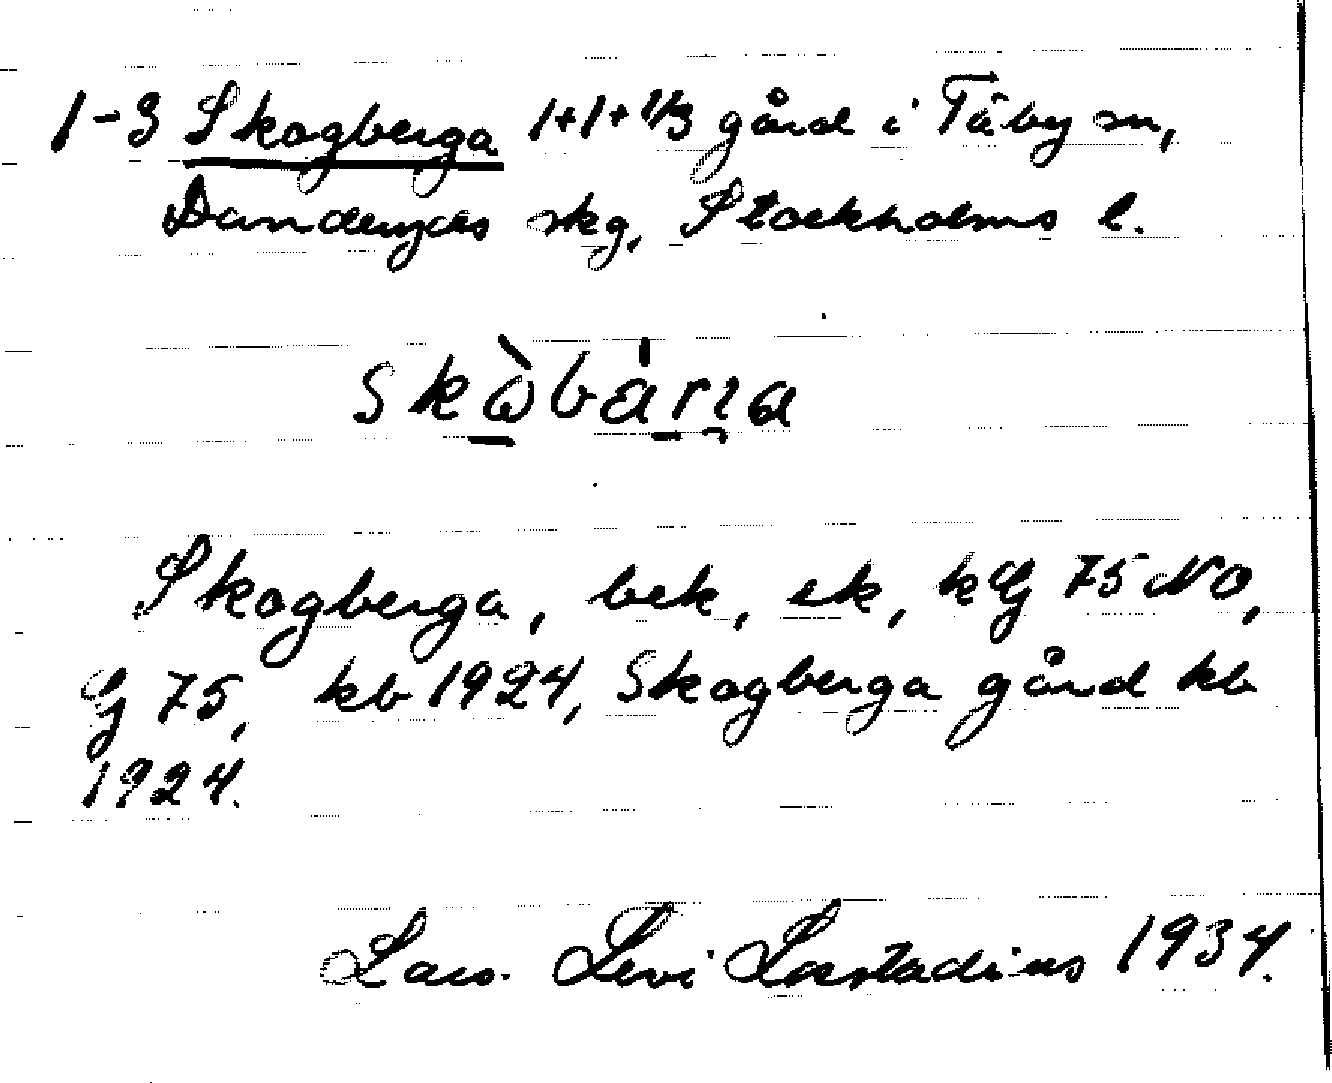 1-3 Skogberga 1+1+1/3 gård i Täby sn,
Danderyds skg, Stockholms l.
Skogberga, bek, ek, kG 75 NO,
G 75, kb 1924, Skogberga gård kb
1924.
Lars Levi Læstadius 1934.